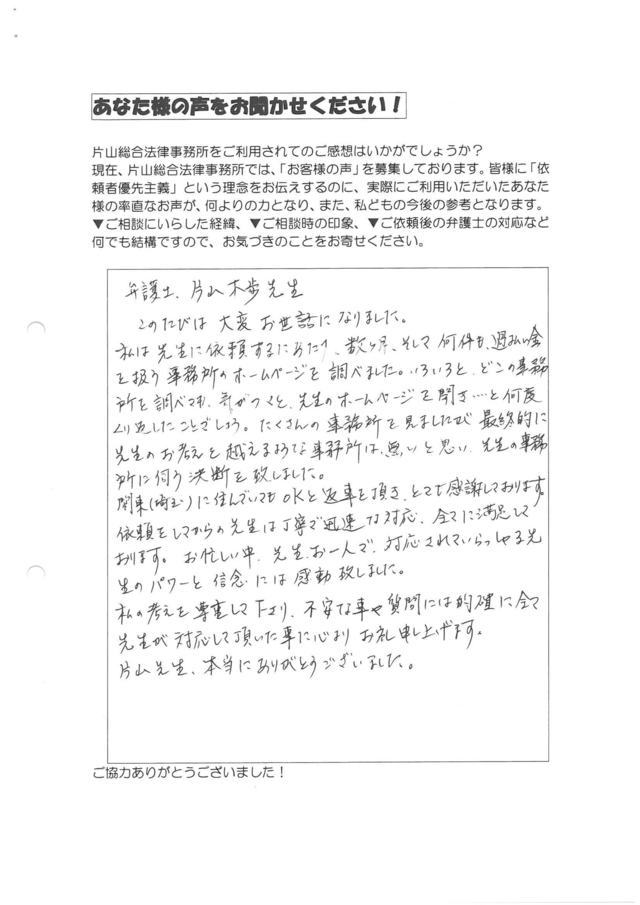 あなた様の声をお聞かせください！
片山総合法律事務所をご利用されてのご感想はいかがでしょうか？
現在、片山総合法律事務所では、「お客様の声」を募集しております。皆様に「依
頼者優先主義」という理念をお伝えするのに、実際にご利用いただいたあなた
様の率直なお声が、何よりの力となり、また、私どもの今後の参考となります。
▼ご相談にいらした経緯、▼ご相談時の印象、▼ご依頼後の弁護士の対応など
何でも結構ですので、お気づきのことをお寄せください。
弁護士、片山木歩先生
このたびは大変お世話になりました。
私は先生に依頼するにあたり、数ヶ月、そして何件も、過払い金
を扱う事務所のホームページを調べました。いろいろと、どこの事務
所を調べても、気がつくと、先生のホームページを開き…と何度
くり返したことでしょう。たくさんの事務所を見ましたが最終的に
先生のお考えを越えるような事務所は、無いと思い、先生の事務
所に伺う決断を致しました。
関東(埼玉)に住んでいてもOKと返事を頂き、とても感謝しております。
依頼をしてからの先生は丁寧で迅速な対応、全てに満足して
おります。お忙しい中、先生お一人で、対応されていらっしゃる先
生のパワーと信念には感動致しました。
私の考えを尊重して下さり、不安な事や質問には的確に全て
先生が対応して頂いた事に心よりお礼申し上げます。
片山先生、本当にありがとうございました。
ご協力ありがとうございました！